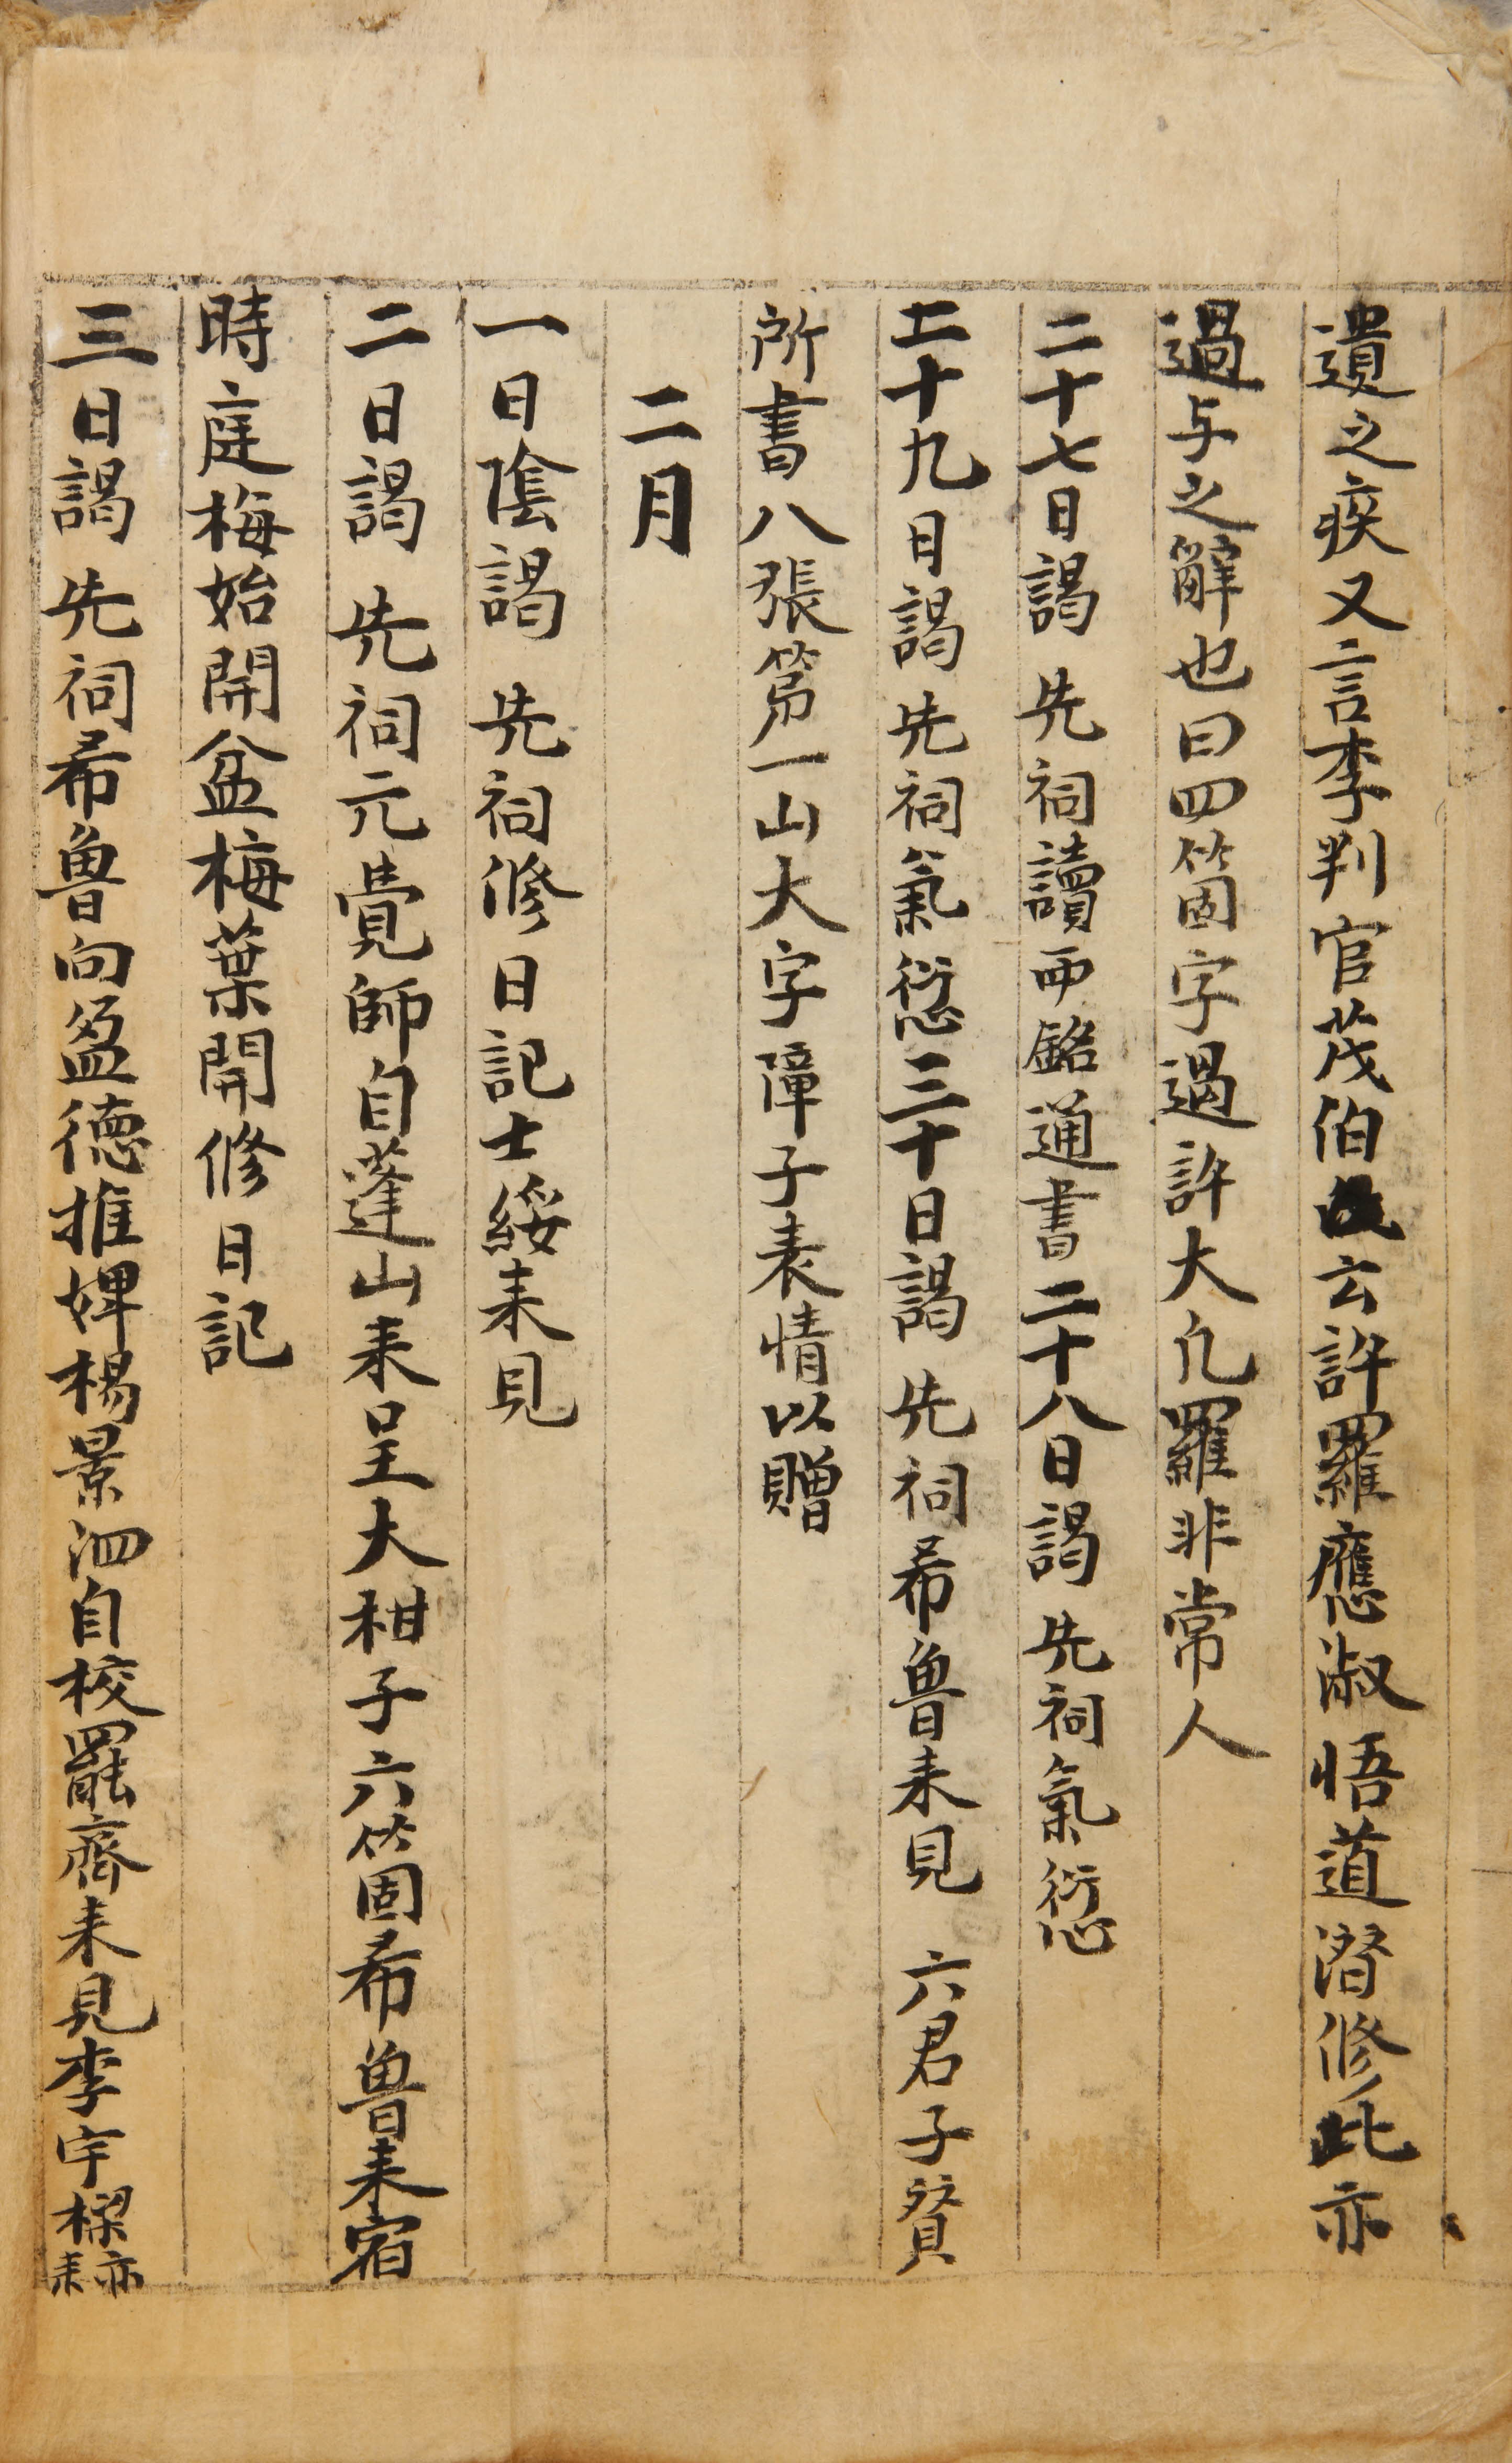 遺之疾又言李判官茂伯云許羅應淑悟道潛修此亦
過与之辭也曰四箇字過許大凢羅非常人
二十七日謁 先祠讀西銘通書二十八日謁 先祠氣愆
二十九日謁 先祠氣愆三十日謁 先祠希魯来見 六君子賛
所書八張第一山大字障子表情以贈
二月
一日陰謁 先祠修日記士綏来見
二日謁 先祠元覺師自蓬山来呈大柑子六箇希魯来宿
時庭梅始開盆梅葉開修日記
三日謁 先祠希魯向盈德推婢楊景泗自校罷齋来見李宇樑亦来